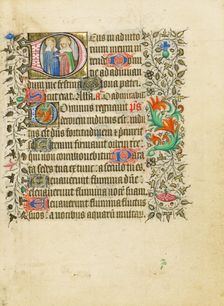 Deus in adiuto
rium meum
intende Domine
ad adiuuan
dum me festina Gloria patri
Sicut erat Alla
Dominus regnauit ps
decorem indutus est
dns fortitudinem et precin
Etenim firmauit orbem
qui non commouebitur Para
ta sedes tua ex tunc a
Eleuauerunt flumina dne
eleuauerunt flumina uocē suā
Eleuauerunt flumina fluctus
suos a uocibus aquarū multar